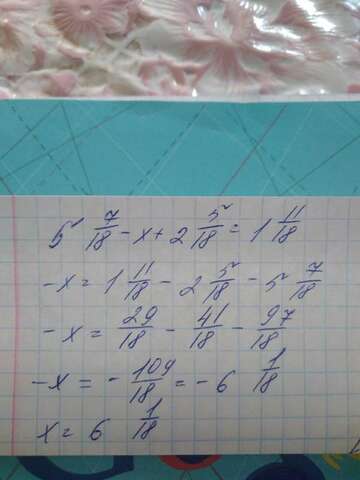 5 7/18 - x + 2 5/18 = 1 11/18
-x = 1 11/18 - 2 5/18 - 5 7/18
-x = 29/18 - 41/18 - 97/18
-x = - 109/18 = - 6 1/18
x = 6 1/18